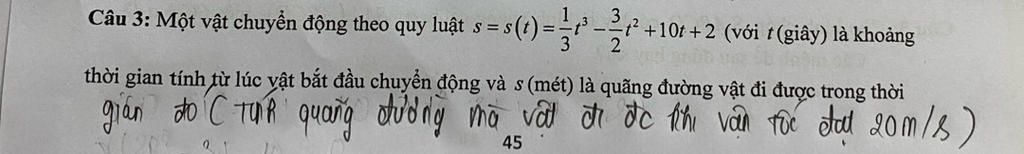 Câu 3: Một vật chuyển động theo quy luật s = s(t) = 1/3 t³ − 3/2 t² + 10t + 2 (với t (giây) là khoảng
thời gian tính từ lúc vật bắt đầu chuyển động và s (mét) là quãng đường vật đi được trong thời
gian đó ( Tính quãng đường mà vật đi đc khi vận tốc đạt 20m/s )
45